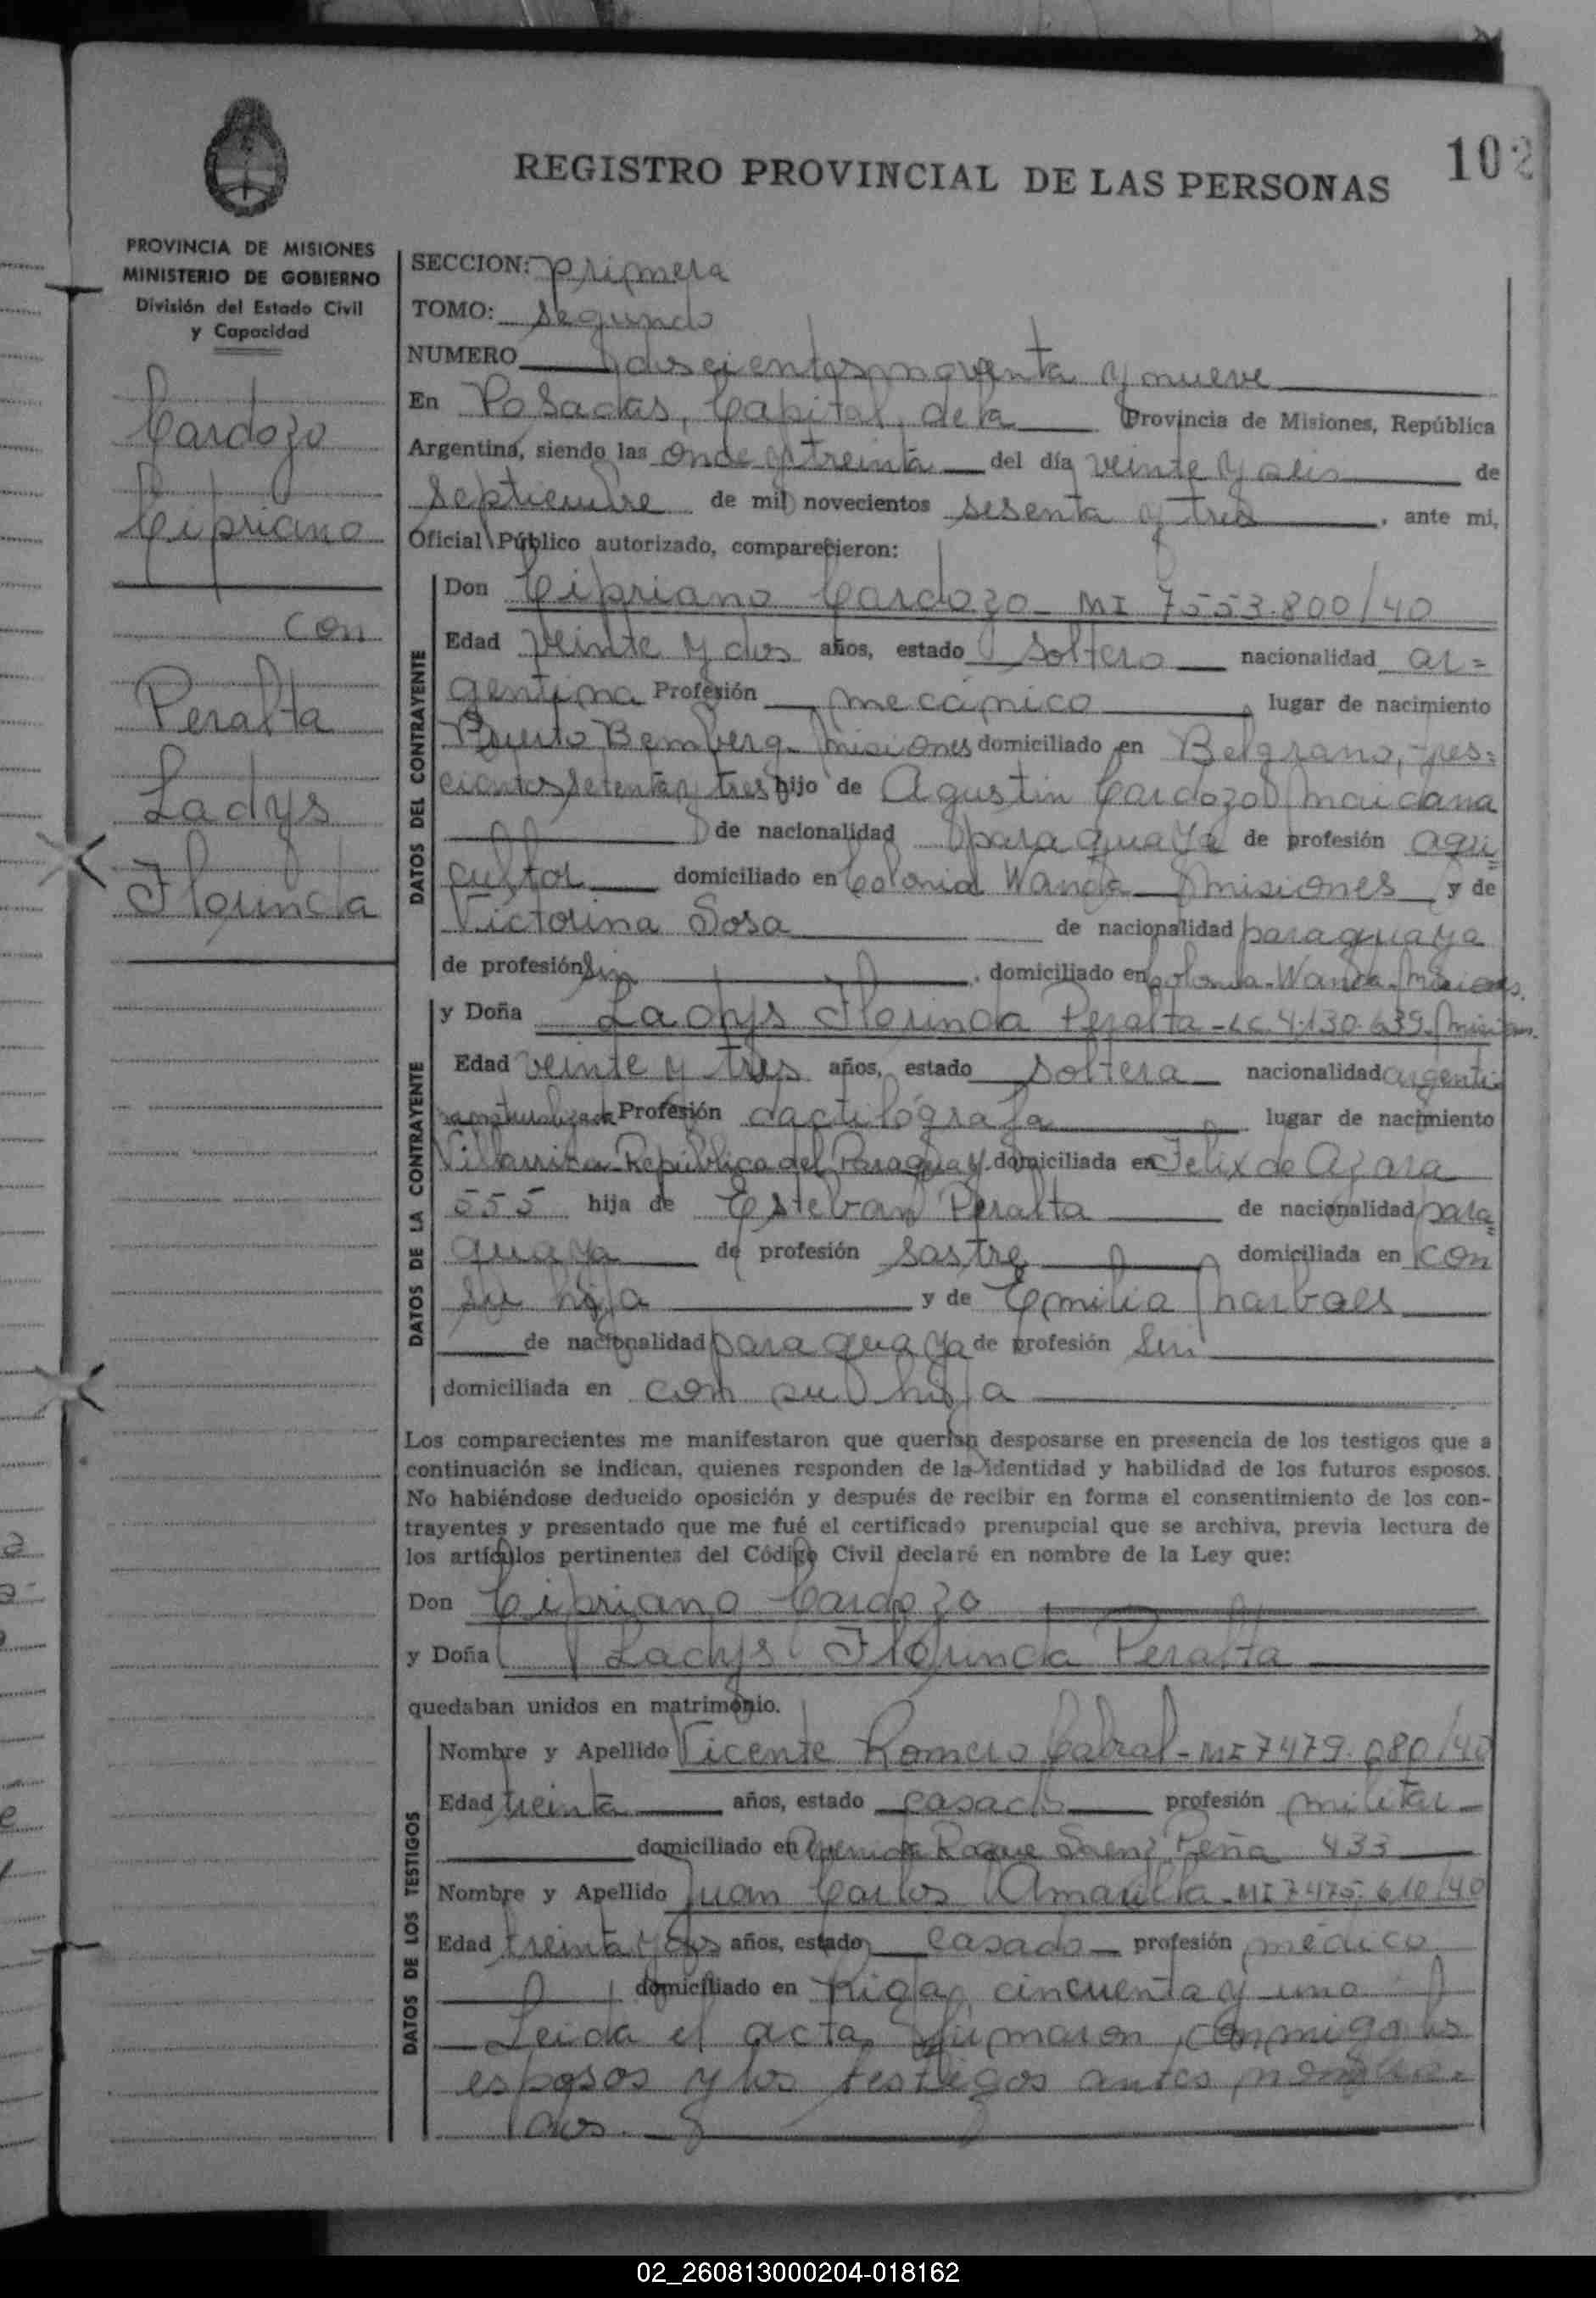 REGISTRO PROVINCIAL DE LAS PERSONAS
102
PROVINCIA DE MISIONES
MINISTERIO DE GOBIERNO
División del Estado Civil
y Capacidad
Cardozo
Cipriano
con
Peralta
Ladys
Florinda
SECCION: primera
TOMO: segundo
NUMERO doscientos noventa y nueve
En Posadas, Capital de la Provincia de Misiones, República
Argentina, siendo las once y treinta del día veinte y seis de
septiembre de mil novecientos sesenta y tres, ante mi,
Oficial Público autorizado, comparecieron:
DATOS DEL CONTRAYENTE
Don Cipriano Cardozo - MI 7553.800/40
Edad veinte y dos años, estado soltero nacionalidad ar=
gentina Profesión mecánico, lugar de nacimiento
Puerto Bemberg - Misiones domiciliado en Belgrano, tres=
cientos setenta y tres hijo de Agustin Cardozo Maidana
de nacionalidad paraguaya de profesión agri
cultor domiciliado en Colonia Wanda - Misiones y de
Victorina Sosa de nacionalidad paraguaya
de profesión sin, domiciliado en Colonia Wanda - Misiones.
DATOS DE LA CONTRAYENTE
y Doña Ladys Florinda Peralta - LC 4.130.639
Edad veinte y tres años, estado soltera nacionalidad argenti
na naturalizada Profesión dactilógrafa lugar de nacimiento
Villarrica República del Paraguay. domiciliada en Felix de Azara
555 hija de Esteban Peralta de nacionalidad para=
guaya de profesión sastre domiciliada en con
su hija y de Emilia Narbaes
de nacionalidad paraguaya de profesión sin
domiciliada en con su hija
Los comparecientes me manifestaron que querían desposarse en presencia de los testigos que a
continuación se indican, quienes responden de la identidad y habilidad de los futuros esposos.
No habiéndose deducido oposición y después de recibir en forma el consentimiento de los con-
trayentes y presentado que me fué el certificado prenupcial que se archiva, previa lectura de
los artículos pertinentes del Código Civil declaré en nombre de la Ley que:
Don Cipriano Cardozo
y Doña Ladys Florinda Peralta
quedaban unidos en matrimonio.
DATOS DE LOS TESTIGOS
Nombre y Apellido Vicente Romero Cabral - MI 7479.080/40
Edad treinta años, estado casado profesión militar
domiciliado en Avenida Roque Saenz Peña 433
Nombre y Apellido Juan Carlos Amarilla - MI 7475.610/40
Edad treinta y dos años, estado casado profesión médico
domiciliado en Rioja, cincuenta y uno
Leida el acta, firmaron conmigo los
esposos y los testigos antes nombra-
dos.
02_260813000204-018162